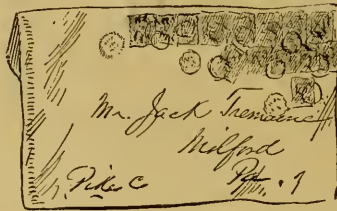 Mr. Jack Tremaine
Milford
Pike Co Pa.